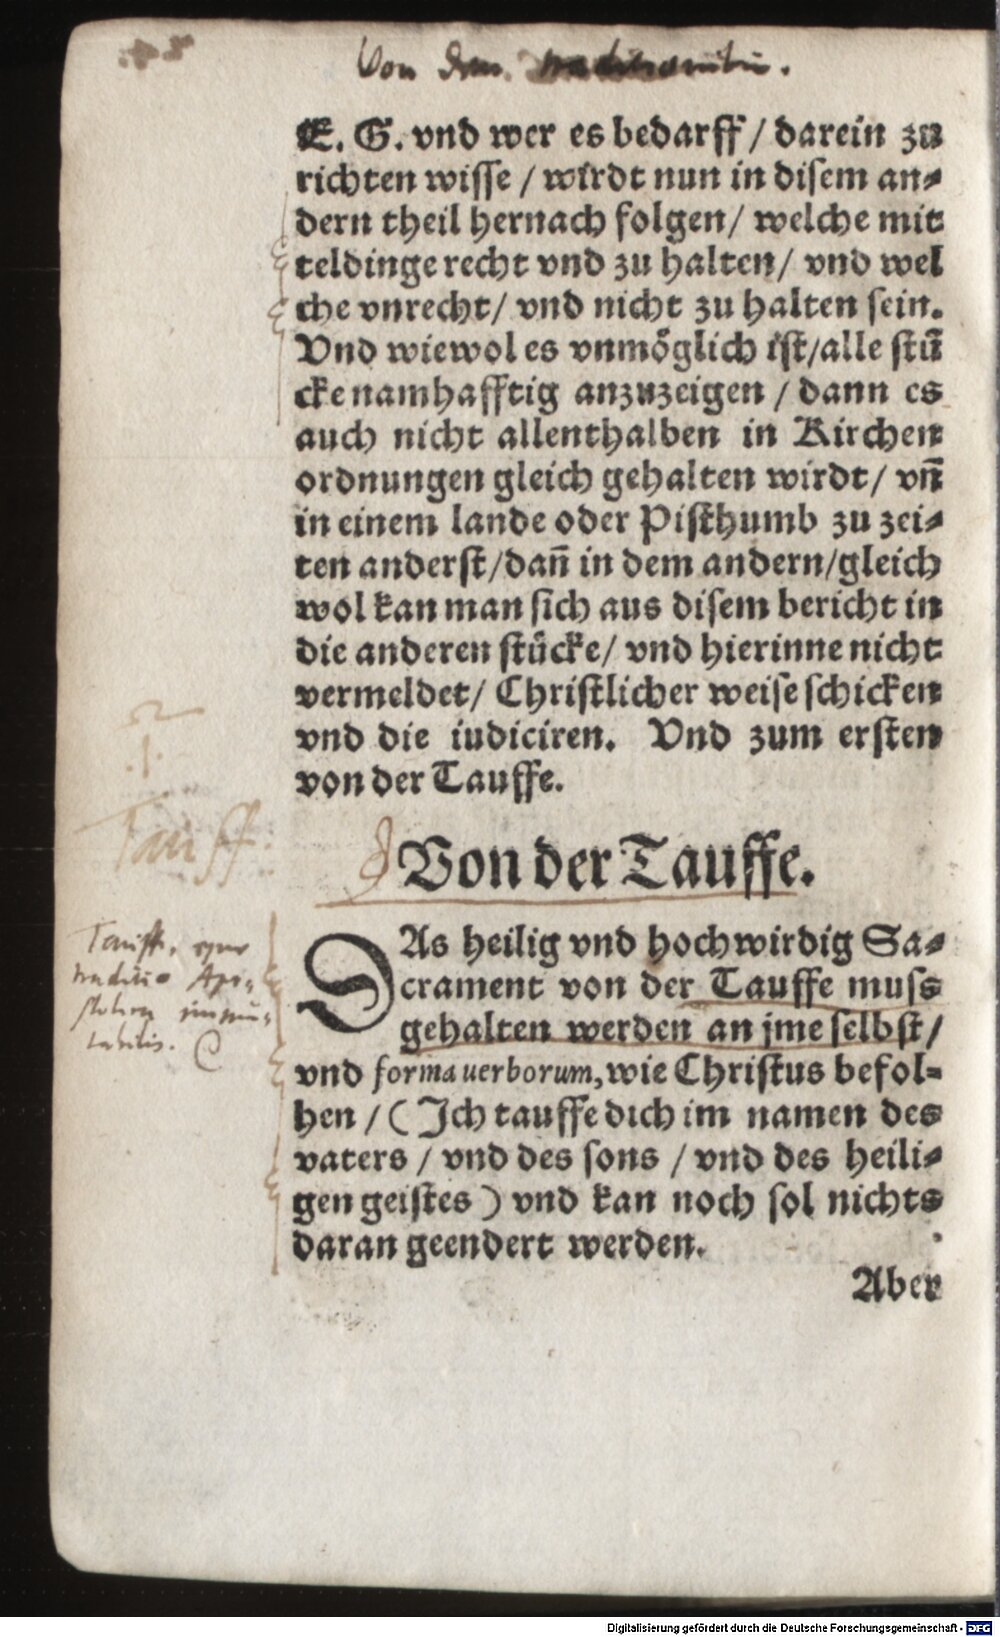 Von den
E. G. vnd wer es bedarff / darein zu
richten wisse / wirdt nun in disem an⸗
dern theil hernach folgen / welche mit
teldinge recht vnd zu halten / vnd wel
che vnrecht / vnd nicht zu halten sein.
Vnd wiewol es vnmöglich ist / alle stü
cke namhafftig anzuzeigen / dann es
auch nicht allenthalben in Kirchen
ordnungen gleich gehalten wirdt / vn̄
in einem lande oder Pisthumb zu zei⸗
ten anderst / dan̄ in dem andern / gleich
wol kan man sich aus disem bericht in
die anderen stücke / vnd hierinne nicht
vermeldet / Christlicher weise schicken
vnd die iudiciren. Vnd zum ersten
von der Tauffe.
.1.
Tauff.
Von der Tauffe.
DAs heilig vnd hochwirdig Sa⸗
crament von der Tauffe muss
gehalten werden an jme selbst /
vnd forma uerborum, wie Christus befol⸗
hen / (Ich tauffe dich im namen des
vaters / vnd des sons / vnd des heili⸗
gen geistes) vnd kan noch sol nichts
daran geendert werden.
Aber
Tauff,
traditio Apo⸗
immu⸗
tabilis.
Digitalisierung gefördert durch die Deutsche Forschungsgemeinschaft - DFG